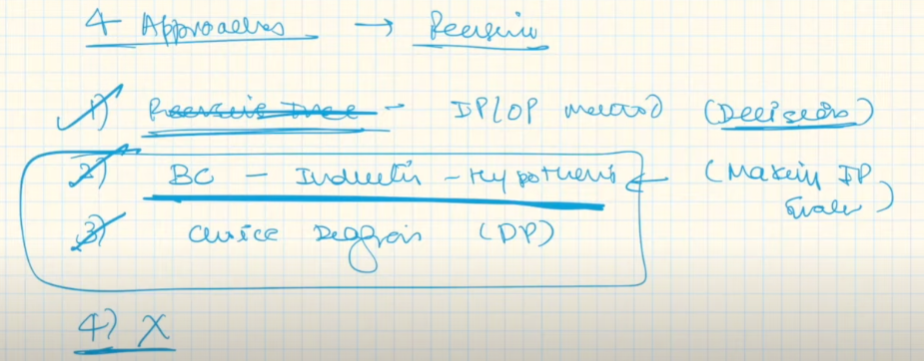 4 Approaches → Recursion
1) Recursive Tree - IP/OP method (Decision)
2) BC - Induction - Hypothesis ← (Making IP
smaller)
3) Choice Diagram (DP)
4) X